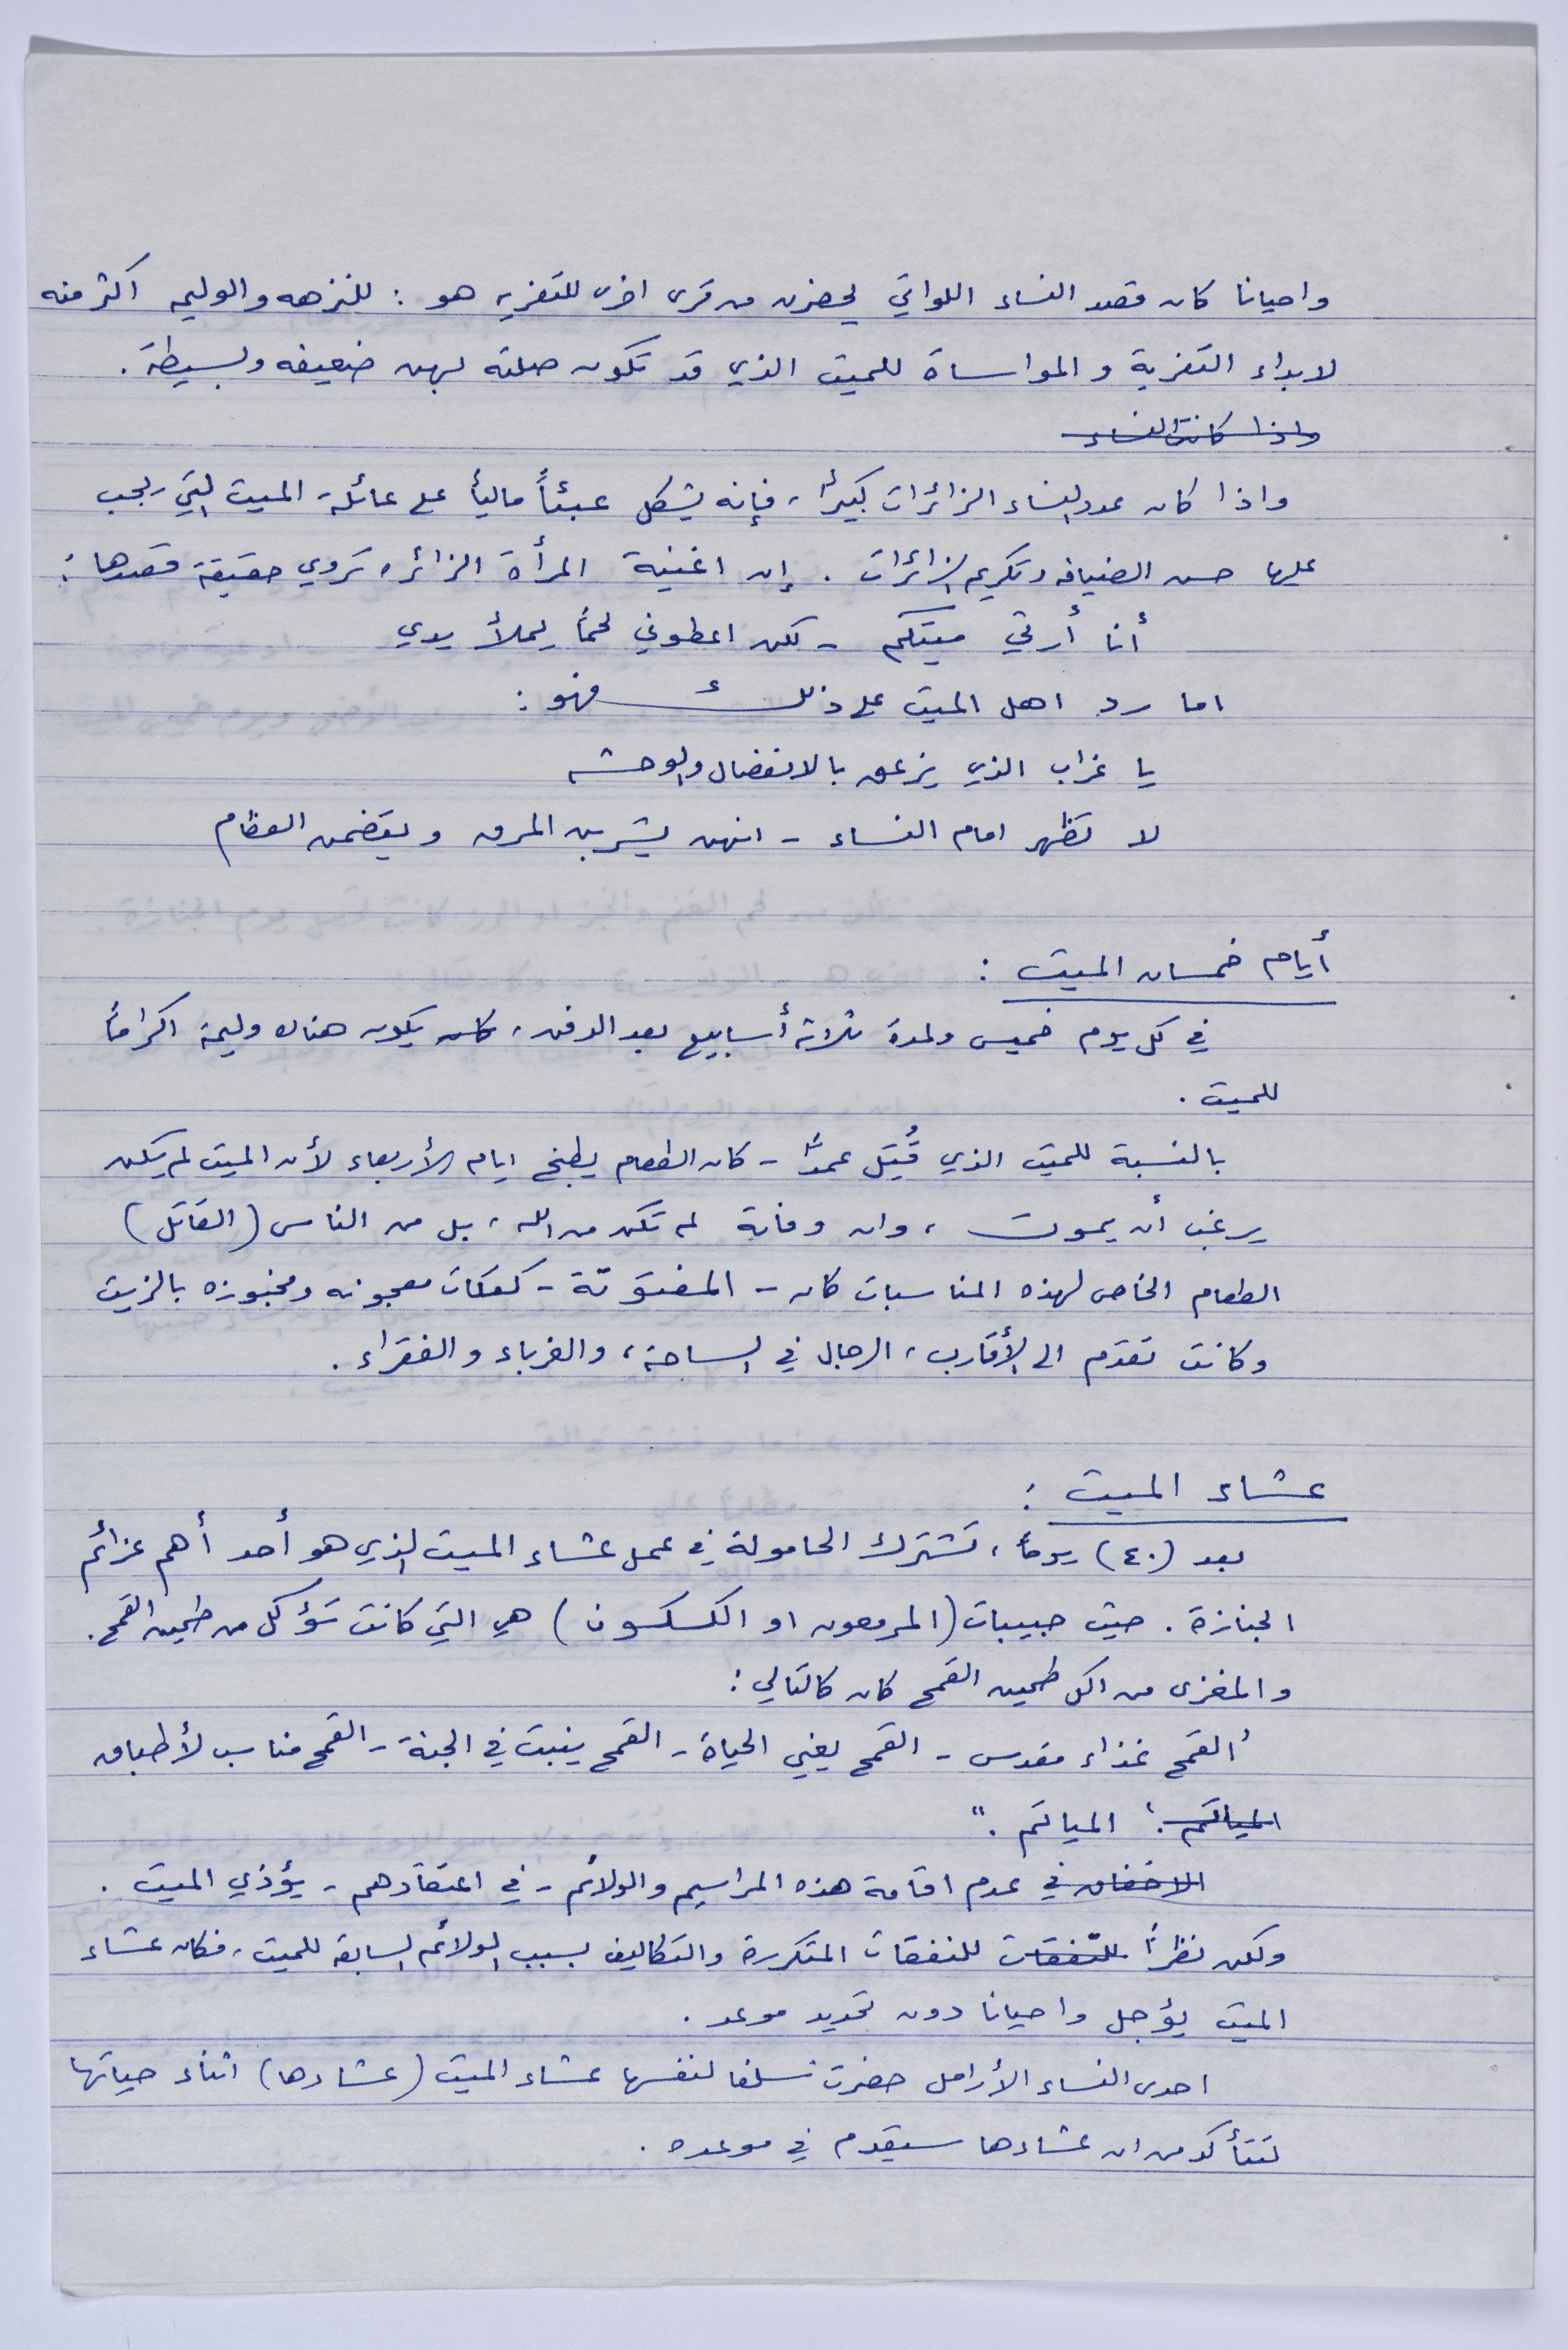 واحيانا كان قصد النساء اللواتي يحضرن من قرى اخرى للتعزيه هو : للنزهه والوليمه اكثر منه
لابداء التعزية والمواساة للميت الذي قد تكون صلته بهن ضعيفه وبسيطة .
واذا كانت النساء
واذا كان عدد النساء الزائرات كبيراً ، فإنه يشكل عبئاً مالياً على عائلة الميت التي يجب
عليها حسن الضيافه وتكريم الزائرات . إن اغنية المرأة الزائره تروي حقيقة قصدها :
أنا أرثي ميتكم - لكن اعطوني لحماً يملأ يدي
اما رد اهل الميت على ذلك فهو :
يا غراب الذي يزعق بالانفصال والوحشه
لا تظهر امام النساء - انهن يشربن المرق ويقضمن العظام
أيام خمسان الميت :
في كل يوم خميس ولمدة ثلاثة أسابيع بعد الدفن ، كان يكون هناك وليمة اكراماً
للميت .
بالنسبة للميت الذي قُتِل عمداً - كان الطعام يطبخ ايام الأربعاء لأن الميت لم يكن
يرغب أن يموت ، وان وفاته لم تكن من الله ، بل من الناس (القاتل)
الطعام الخاص لهذه المناسبات كان - المفتوتة - كعكات معجونه ومخبوزه بالزيت
وكانت تقدّم الى الأقارب ، الرجال في الساحة ، والغرباء والفقراء .
عشاء الميت :
بعد (٤٠) يوماً ، تشترك الحامولة في عمل عشاء الميت الذي هو أحد أهم عزائم
الجنازة . حيث حبيبات (المرمعون او الكسكسون) هي التي كانت تؤكل من طحين القمح .
والمغزى من اكل طحين القمح كان كالتالي :
"القمح غذاء مقدس - القمح يعني الحياة - القمح ينبت في الجنة - القمح مناسب لأطباق
المياتم . المياتم ."
الاخفاق في عدم اقامة هذه المراسيم والولائم - في اعتقادهم - يؤذي الميت .
ولكن نظراً للنفقات للنفقات المتكررة والتكاليف بسبب الولائم السابقة للميت ، فكان عشاء
الميت يؤجل واحيانا دون تحديد موعد .
احدى النساء الأرامل حضرت سلفا لنفسها عشاء الميت (عشاءها) اثناء حياتها
لتتأكد من ان عشاءها سيقدم في موعده .